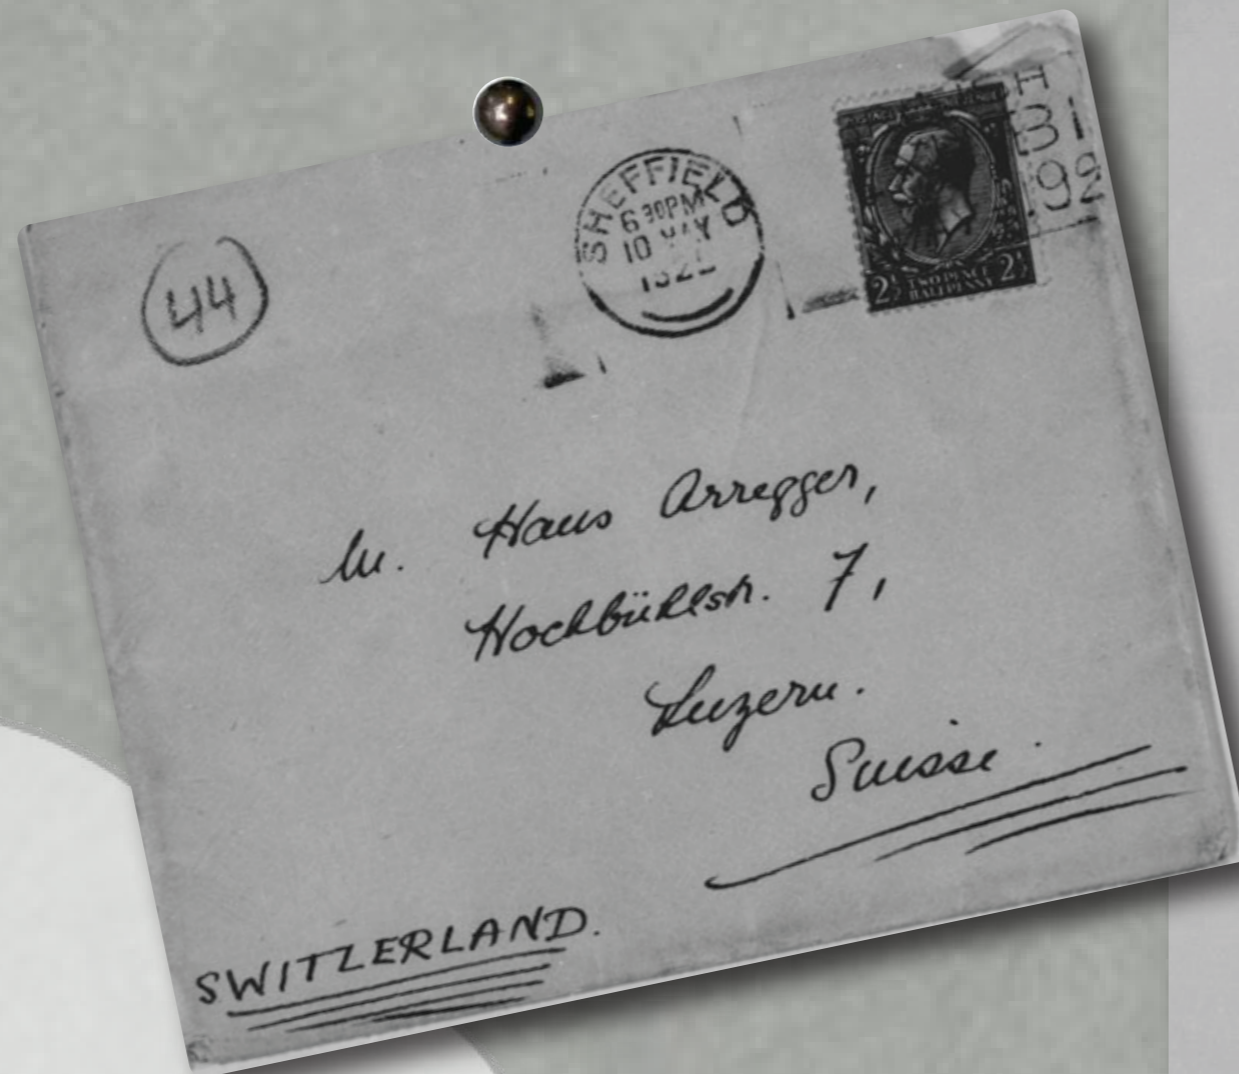 44
SHEFFIELD
6 30PM
10 MAY
2½ TWO PENCE 2½
HALFPENNY
M. Hans Arregger,
Hochbühlstr. 7,
Luzern.
Suisse.
SWITZERLAND.